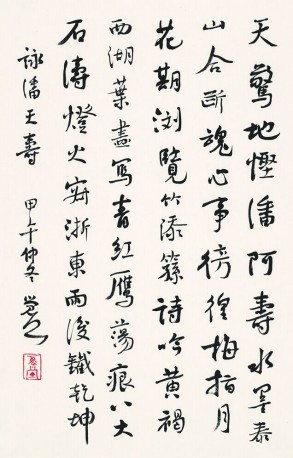 天驚地慳潘阿壽水墨泰
山合斷魂心事徬徨梅指月
花期浏覽竹添蓀詩吟黃褐
西湖葉盡寫青紅鴈蕩痕八大
石濤燈火浙東雨後鐵乾坤
詠潘天壽 甲午仲冬